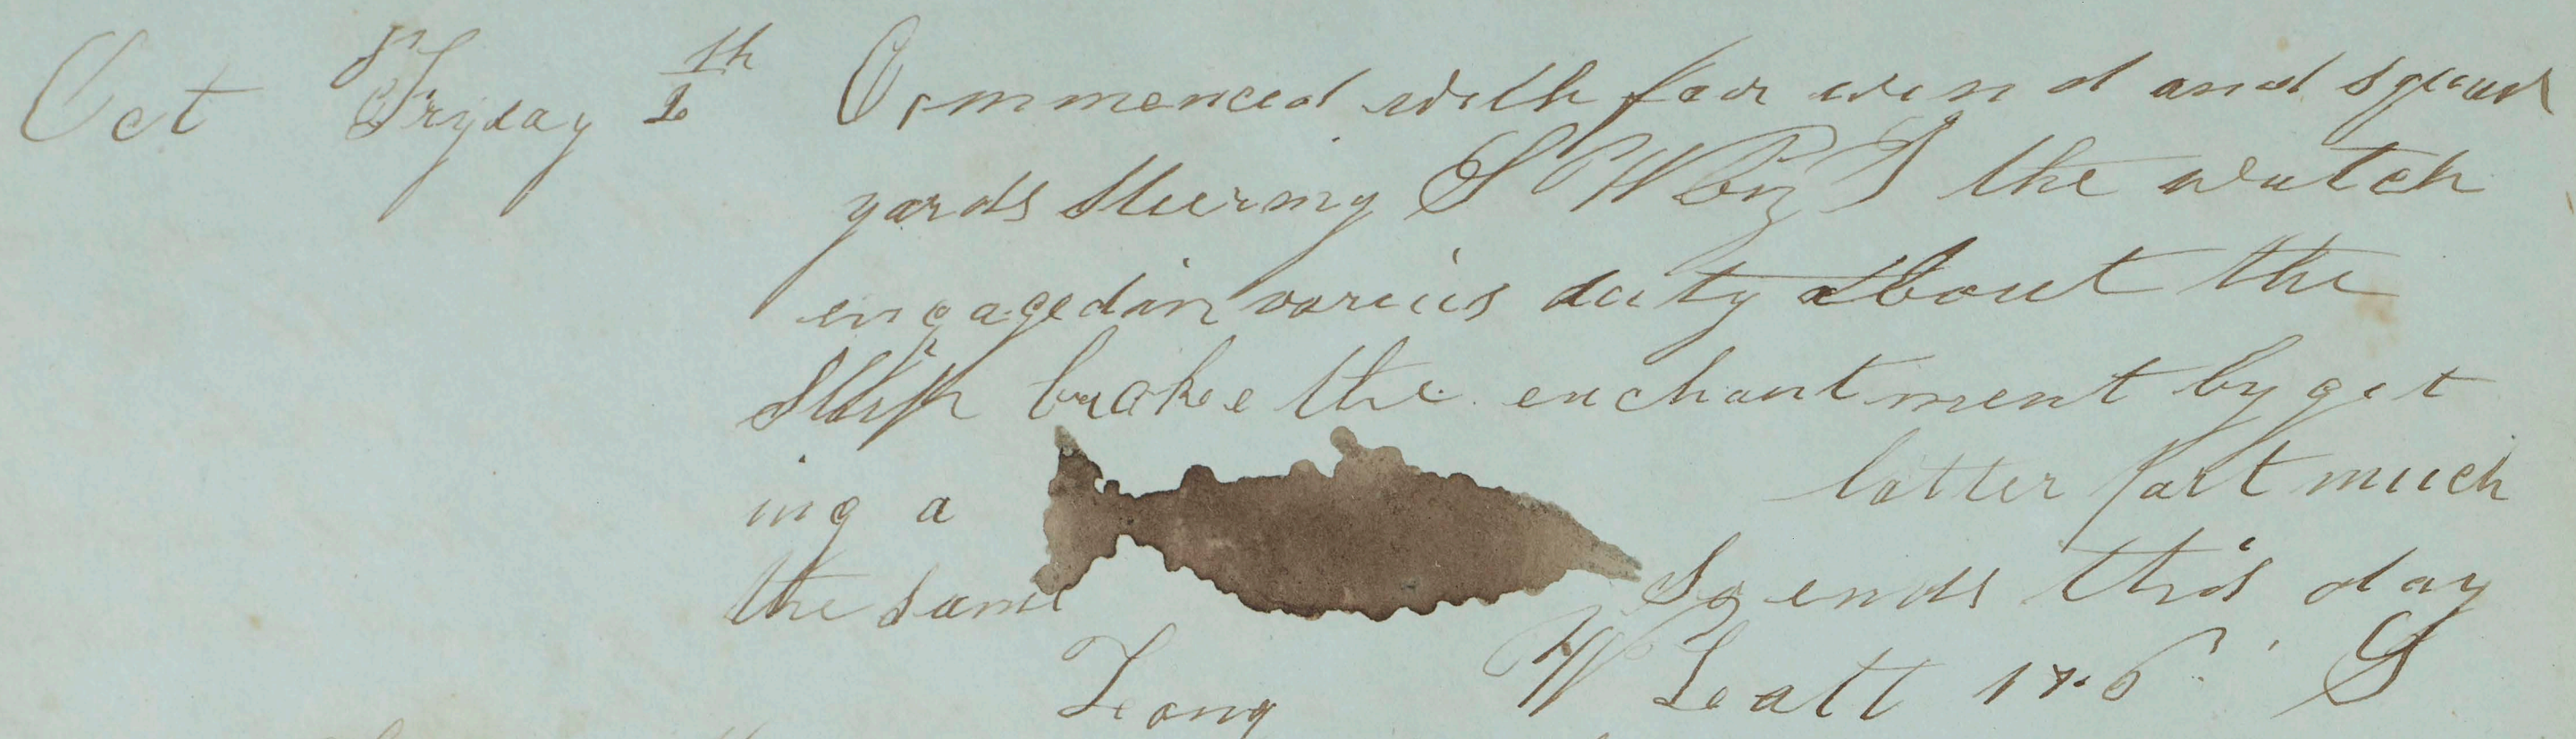 Oct Fryday 1th Commenced with fair wind and squar
yards Steering S W by S the watch
engaged in varius duty about the
Ship brake the enchantment by get
ing a latter part much
the same So ends this day
Long W Latt 17.6 S